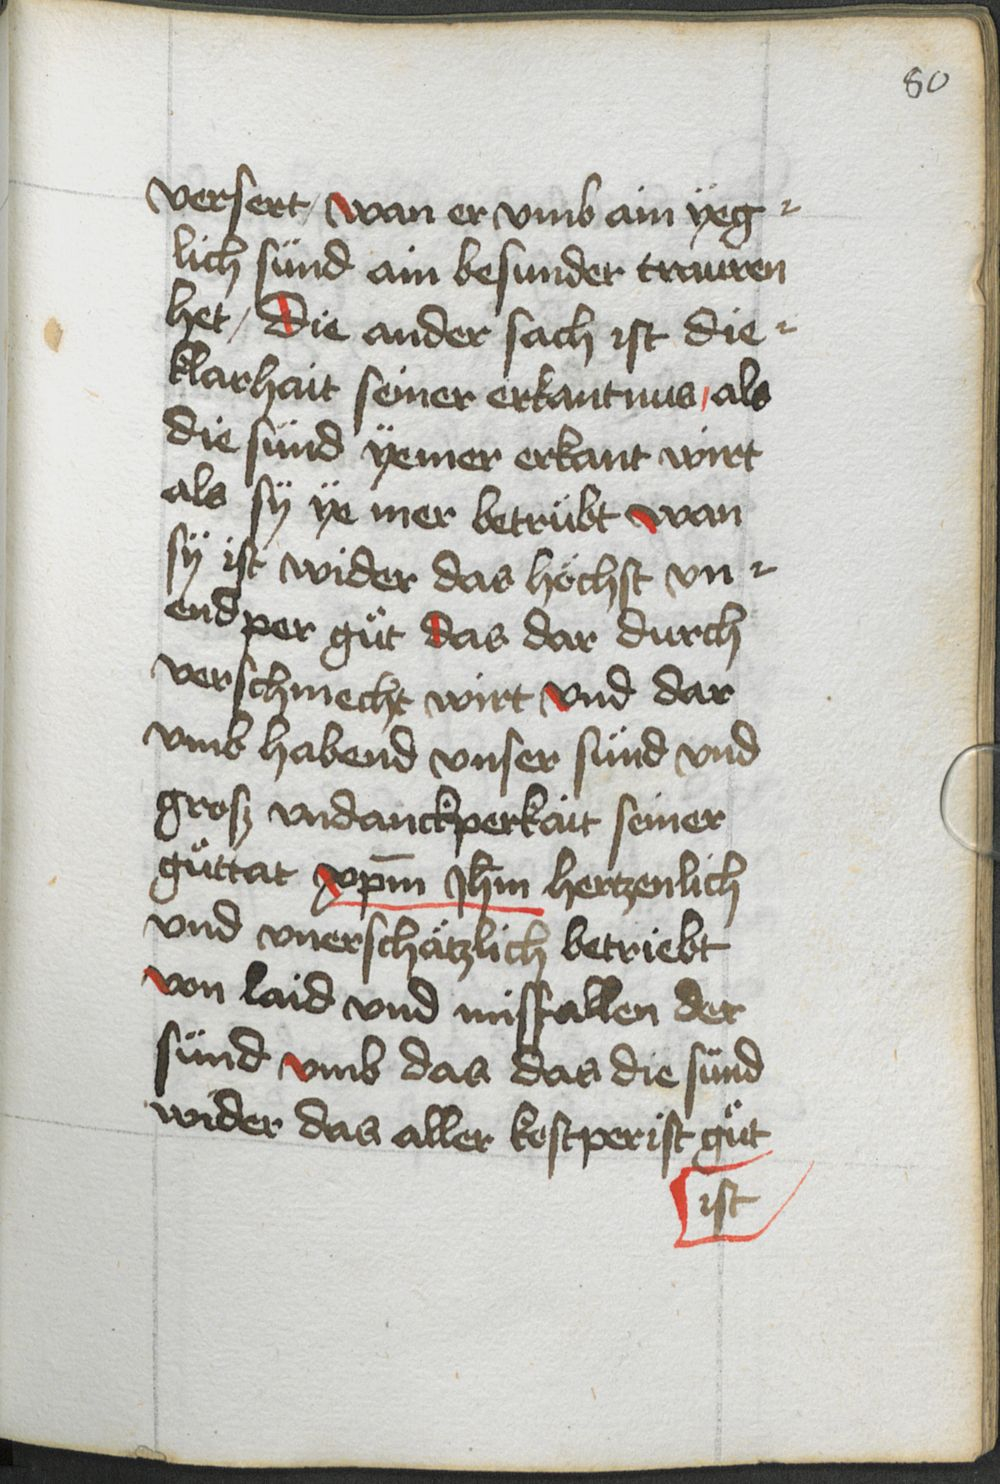 80
versert / wan er vmb ain ÿeg-
lich sünd ain besunder trauren
het / Die ander sach ist die-
klarhait seiner erkantnus / als
die sünd ÿe mer erkant wirt
als sÿ ÿe mer betrübt wan
sÿ ist wider das höchst vn-
endper gůt das dar durch
verschmecht wirt vnd dar
vmb habend vnser sünd vnd
grosz vndanckperkait seiner
gůttat xp̄m Jh̄m hertzenlich
vnd vnerschätzlich betriebt
von laid vnd missfallen der
sünd vmb das das die sünd
wider das aller kostperist gůt
ist